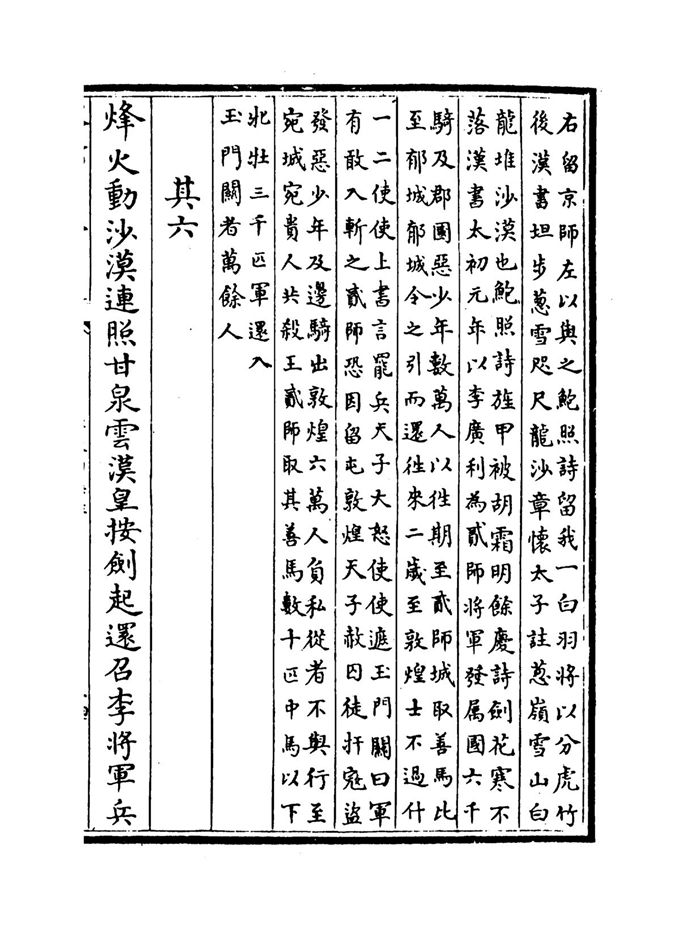 右留京師左以與之鮑照詩留我一白羽將以分虎竹
後漢書坦步蔥雪咫尺龍沙章懷太子註蔥嶺雪山白
龍堆沙漠也鮑照詩旌甲被胡霜明餘慶詩劍花寒不
落漢書太初元年以李廣利為貳師將軍發属國六千
騎及郡國惡少年數萬人以徃期至貳師城取善馬比
至郁城郁城令之引而還徃來二歲至敦煌士不過什
一二使使上書言罷兵天子大怒使使遮玉門闗曰軍
有敢入斬之貳師恐因留屯敦煌天子赦囚徒扞宼盜
發惡少年及邊騎出敦煌六萬人負私從者不與行至
宛城宛貴人共殺王貳師取其善馬數十匹中馬以下
牝牡三千匹軍還入
玉門闗者萬餘人
其六
烽火動沙漠連照甘泉雲漢皇按劍起還召李將軍兵